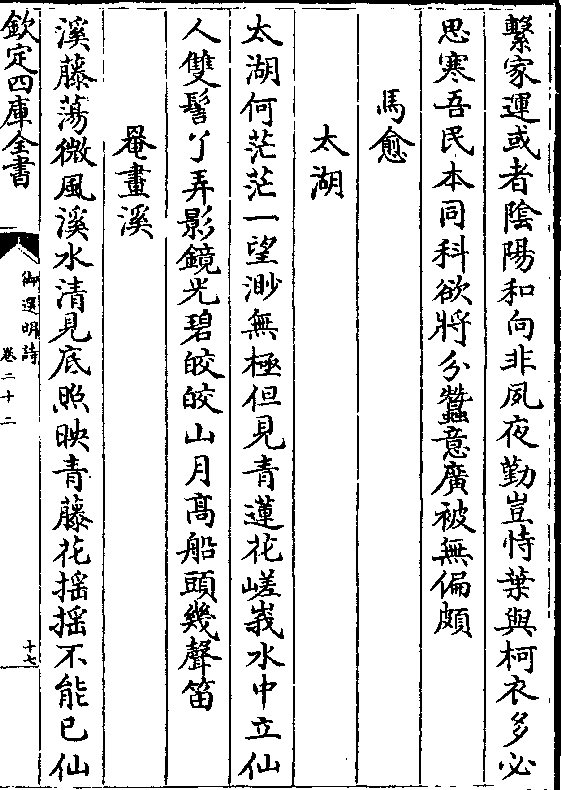 繫家運或者陰陽和向非夙夜勤豈恃葉與柯衣多必
思寒吾民本同科欲將分蠶意廣被無偏頗
馬愈
太湖
太湖何茫茫一望渺無極但見青蓮花嵯峩水中立仙
人雙髻丫弄影鏡光碧皎皎山月髙船頭幾聲笛
罨畫溪
溪藤蕩微風溪水清見底照映青藤花揺揺不能已仙
欽定四庫全書
御選明詩
卷二十二
十七